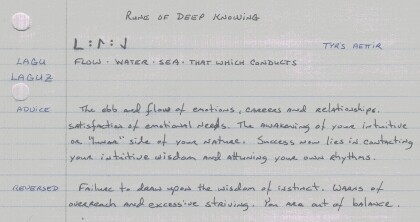 RUNE OF DEEP KNOWING
TYR'S AETTIR
LAGU FLOW · WATER · SEA · THAT WHICH CONDUCTS
LAGUZ
ADVICE The ebb and flow of emotions, careers and relationships.
satisfaction of emotional needs. The awakening of your intuitive
or "lunar" side of your nature. Success now lies in contacting
your intuitive wisdom and attuning your own rhythms.
REVERSED Failure to draw upon the wisdom of instinct. Warns of
overreach and excessive striving. You are out of balance.